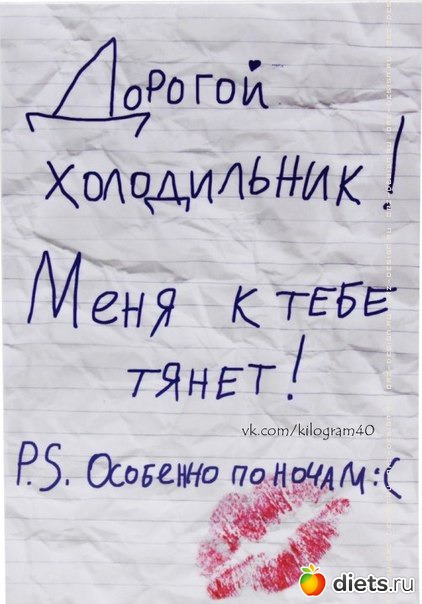 Дорогой
холодильник!
Меня к тебе
тянет!
vk.com/kilogram40
P.S. Особенно по ночам :(
diets.ru